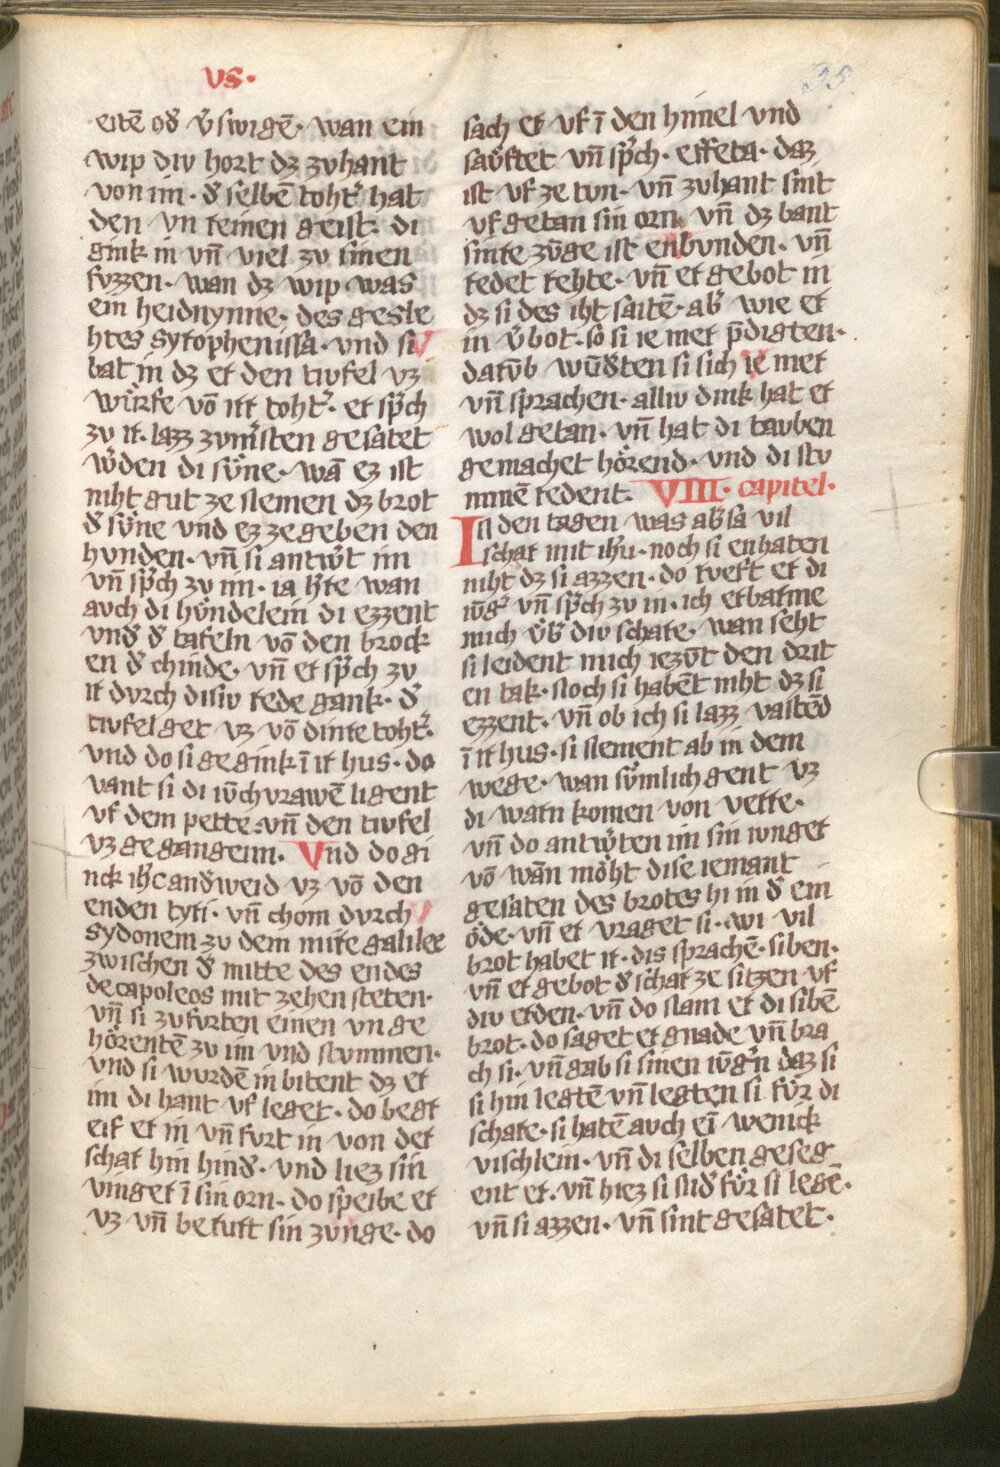 vs·
35
eitē od̓ v̓swigē· wan ein
wip div hort dz zvhant
von im· d̓ selbē toht̓ hat
den vn reinen geist· di
gink in vn̄ viel zv sinen
fvzzen· wan dz wip was
ein heidnynne· des gesle
htes syrophenissa· vnd si
bat in dz er den tivfel vz
wurfe vō irr toht̓· er sp̓ch
zv ir· lazz zvm̓sten gesatet
w̓den di sv̊ne· wā ez ist
niht gut ze nemen dz brot
d̓ sv̊ne vnd ez ze geben den
hvnden· vn̄ si antw̓t im
vn̄ sp̓ch zv im· ia h̓re wan
avch di hv̊ndelein di ezzent
vnd̓ d̓ tafeln vō den brock
en d̓ chinde· vn̄ er sp̓ch zv
ir dvrch disiv rede gank· d̓
tivfel get vz vō dinre toht̓·
vnd do si gegink ī ir hus· do
vant si di iv̄chvrawē ligent
vf dem pette· vn̄ den tivfel
vz gegangenn· Vnd do gi
nck ih̓c and̓weid vz vō den
enden tyri· vn̄ chom dvrch
sydonem zv dem mire galilee
zwischen d̓ mitte des endes
decapoleos mit zehen steten·
vn̄ si zv fvrten einen vn ge
hörentē zv im vnd stvmmen·
vnd si wvrdē in bitent dz er
im di hant vf leget· do begr
eif er in vn̄ fvrt in von der
schar hin hind̓· vnd liez sin
vinger ī sin orn· do speibe er
vz vn̄ berurt sin zvnge· do
sach er vf ī den himel vnd
sav̊ftet vn̄ sp̓ch· effeta· daz
ist vf ze tvn· vn̄ zvhant sint
vf getan sin orn· vn̄ dz bant
sinre zv̄ge ist enbvnden· vn̄
redet rehte· vn̄ er gebot in
dz si des iht saitē· ab̓ wie er
in v̓bot· so si ie mer p̄digten·
darv̄b wūd̓ten si sich ie mer
vn̄ sprachen· alliv dink hat er
wol getan· vn̄ hat di tavben
gemachet hörend· vnd di stv
mmē redent· VIII· capitel·
In den tagen was ab̓ sa vil
schar mit ih̓u· noch si enhaten
niht dz si azzen· do rveft er di
iv̄g̓ vn̄ sp̓ch zv in· ich erbarme
mich v̊b̓ div schare· wan seht
si leident mich iezv̄t den drit
en tak· noch si habēt niht dz si
ezzent· vn̄ ob ich si lazz vastēd
ī ir hus· si nement ab in dem
wege· wan sv̊mlich gent vz
di warn komen von verre·
vn̄ do antw̓ten im sin ivnger
vō wān möht dise iemant
gesaten des brotes hi in d̓ ein
öde· vn̄ er vraget si· wi vil
brot habet ir· dis sprachē· siben·
vn̄ er gebot d̓ schar ze sitzen vf
div erden· vn̄ do nam er di sibē
brot· do saget er gnade vn̄ bra
ch si· vn̄ gab si sinen iv̄g̓n daz si
si hin legtē vn̄ legten si fv̊r di
schare· si hatē avch eī wenick
vischlein· vn̄ di selben geseg
ent er· vn̄ hiez si nid̓ fv̊r si legē·
vn̄ si azzen· vn̄ sint gesatet·